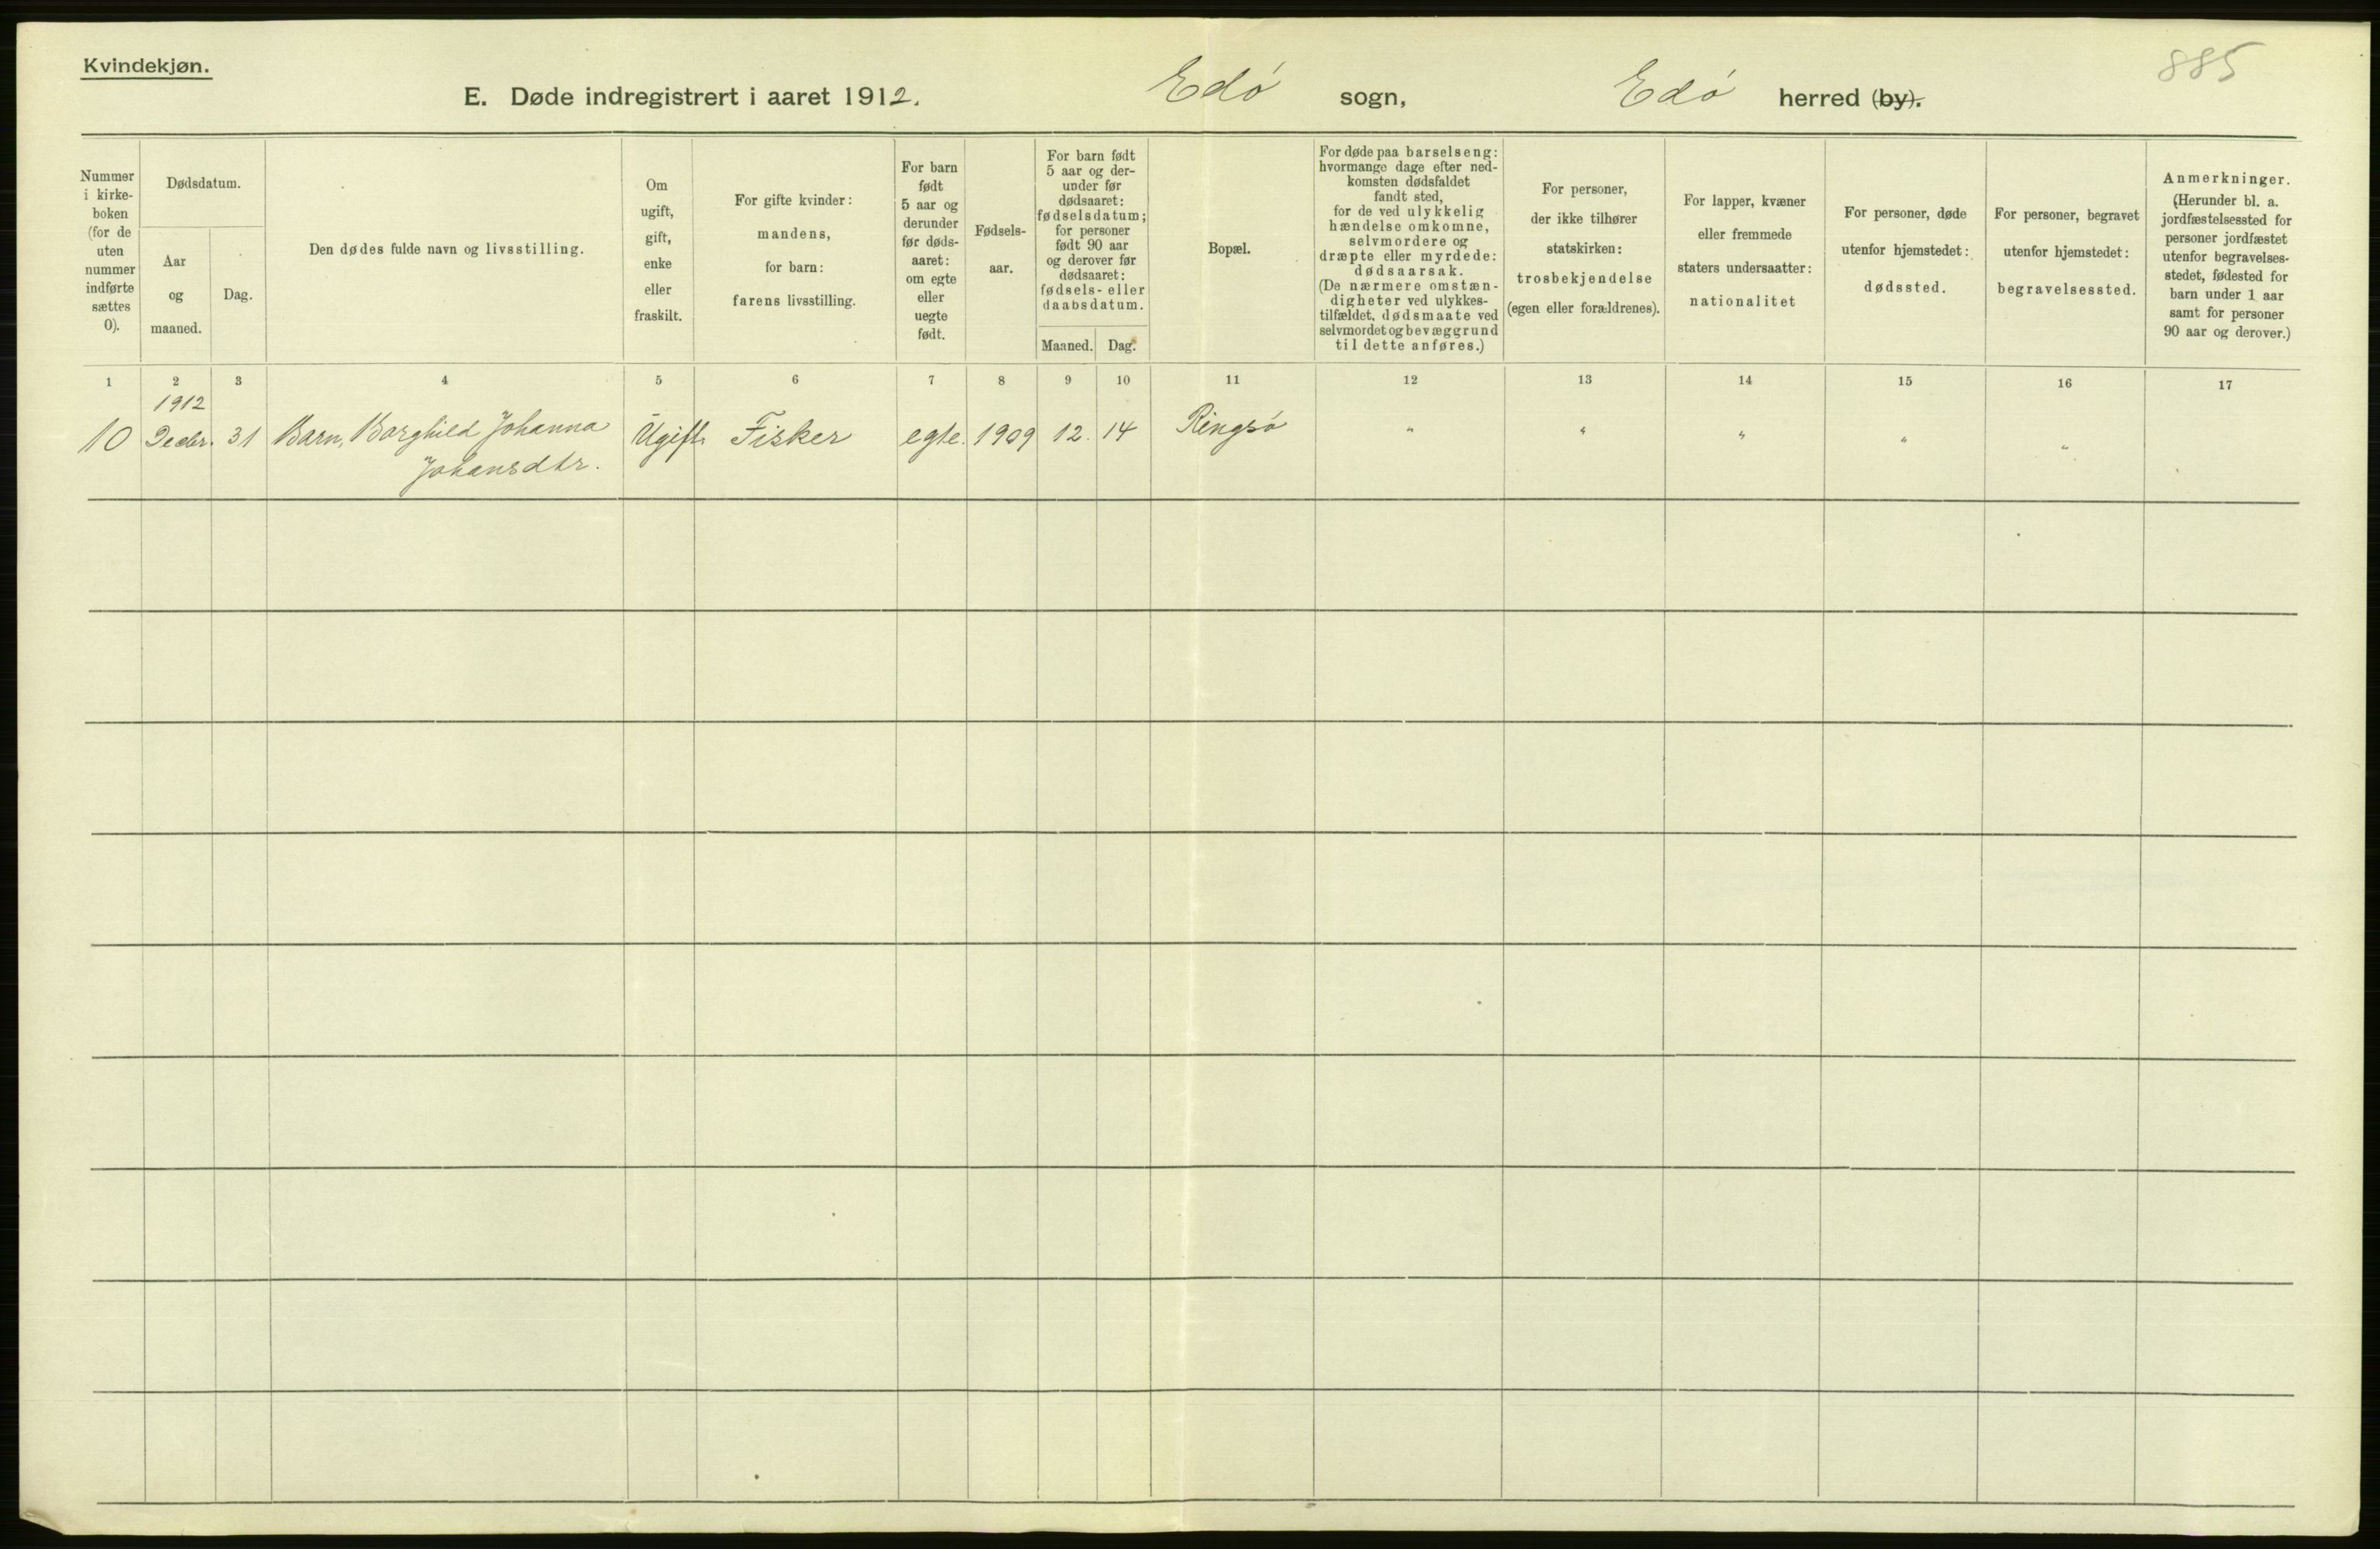 Kvindekjøn.
885
E. Døde indregistrert i aaret 1912. Edó sogn, Edó herred (by).
Nummer
i kirke-
boken
(for de
uten
nummer
indførte
sættes
0).
Dødsdatum.
Aar
og
maaned.
Dag.
Den dødes fulde navn og livsstilling.
Om
ugift,
gift,
enke
eller
fraskilt.
For gifte kvinder:
mandens,
for barn:
farens livsstilling.
For barn
født
5 aar og
derunder
før døds-
aaret:
om egte
eller
uegte
født.
Fødsels-
aar.
For barn født
5 aar og der-
under før
dødsaaret:
fødselsdatum;
for personer
født 90 aar
og derover før
dødsaaret:
fødsels- eller
daabsdatum.
Maaned.
Dag.
Bopæl.
For døde paa barselseng:
hvormange dage efter ned-
komsten dødsfaldet
fandt sted,
for de ved ulykkelig
hændelse omkomne,
selvmordere og
dræpte eller myrdede:
dødsaarsak.
(De nærmere omstæn-
digheter ved ulykkes-
tilfældet, dødsmaate ved
selvmordet og bevæggrund
til dette anføres.)
For personer,
der ikke tilhører
statskirken:
trosbekjendelse
(egen eller forældrenes).
For lapper, kvæner
eller fremmede
staters undersaatter:
nationalitet
For personer, døde
utenfor hjemstedet:
dødssted.
For personer, begravet
utenfor hjemstedet:
begravelsessted.
Anmerkninger.
(Herunder bl. a.
jordfæstelsessted for
personer jordfæstet
utenfor begravelses-
stedet, fødested for
barn under 1 aar
samt for personer
90 aar og derover.)
1 2 3 4 5 6 7 8 9 10 11 12 13 14 15 16 17
1912
10 Decbr. 31 Barn, Borghild Johanna Ugift. Fisker egte. 1909 12. 14 Ringsó " " " " "
Johansdtr.